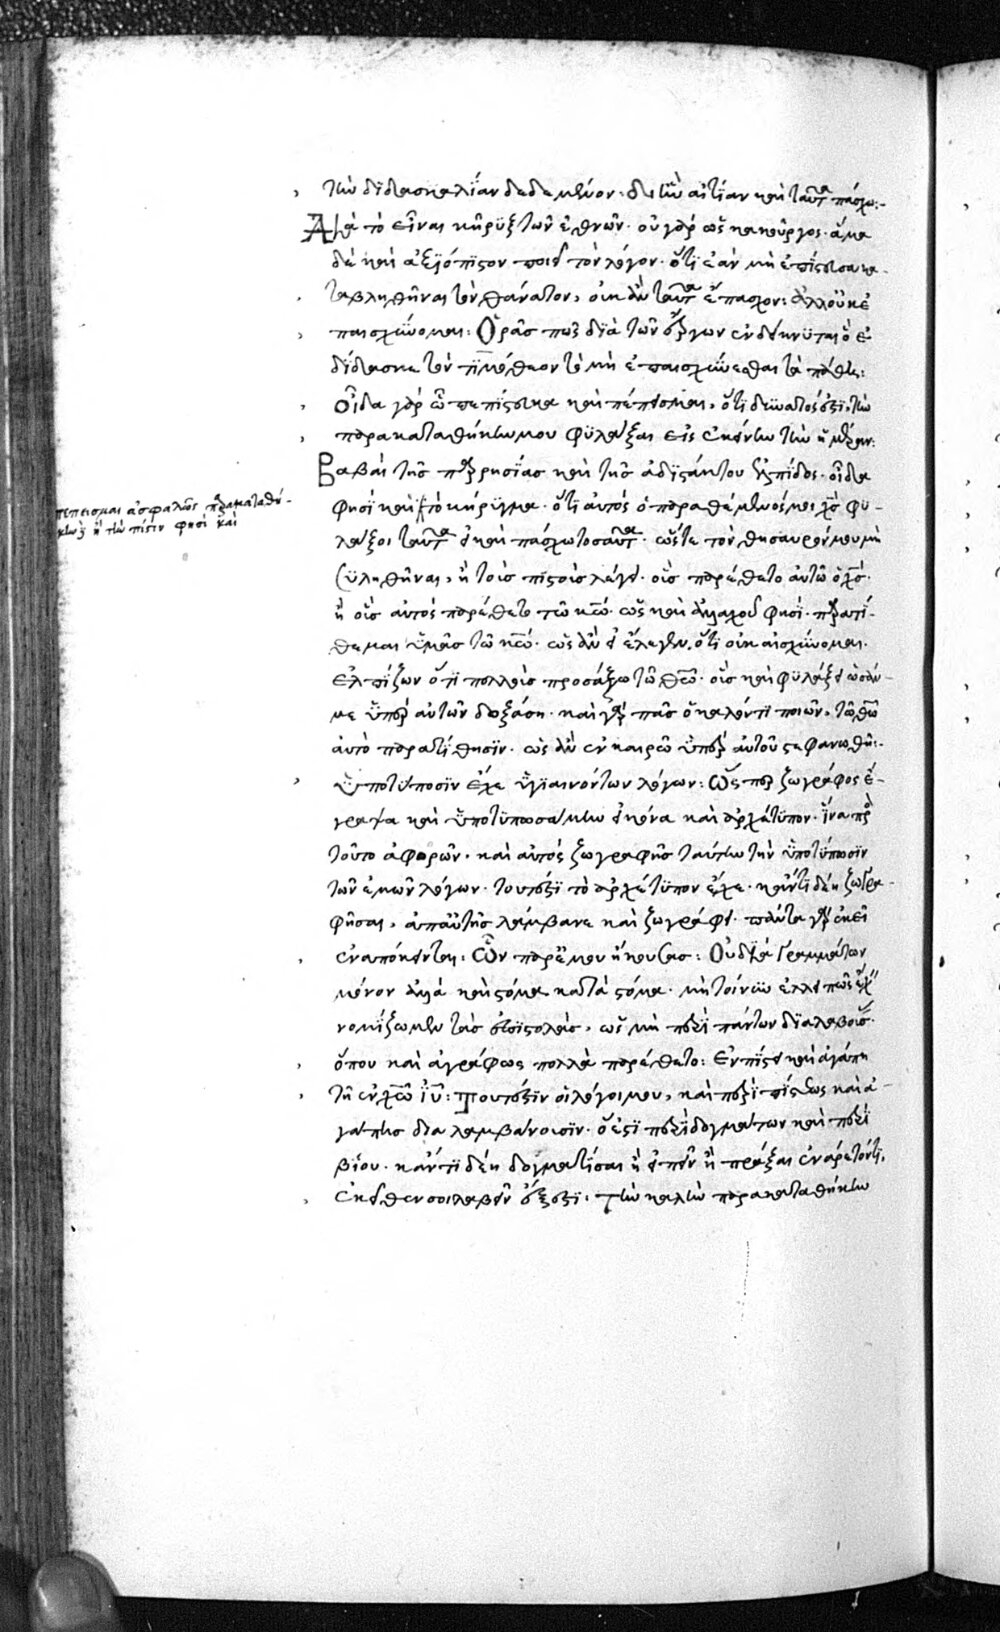 τὴν διδασκαλίαν δεδεμένον· δι' ἣν αἰτίαν καὶ ταῦτα πάσχω:-
Διὰ τὸ εἶναι κῆρυξ τῶν ἐθνῶν· οὐ γὰρ ὡς κακοῦργος· ἅμα
δὲ καὶ ἀξιόπιστον ποιεῖ τὸν λόγον· ὅτι ἐὰν μὴ ἐπίστευσα κα-
ταβληθῆναι τὸν θάνατον, οὐκ ἂν ταῦτα ἔπασχον: ἀλλ' οὐκ ἐ
παισχύνομαι: Ὁρᾶς πῶς διὰ τῶν ἔργων ἐνδείκνυται ὃ ἐ
δίδασκε τὸν τιμόθεον τὸ μὴ ἐπαισχύνεσθαι τὰ πάθη:
Οἶδα γὰρ ᾧ πεπίστευκα καὶ πέπεισμαι, ὅτι δυνατός ἐστι, τὴν
παρακαταθήκην μου φυλάξαι εἰς ἐκείνην τὴν ἡμέραν:
Βαβαὶ τῆς παρρησίας καὶ τῆς ἀδιστάκτου ἐλπίδος· οἶδα
φησὶ καὶ τὸ κήρυγμα· ὅτι αὐτὸς ὁ παραθέμενός μοι χς φυ-
λάξοι ταῦτα εἰ καὶ πάσχω τοσαῦτα· ὥστε τὸν θησαυρόν μου μὴ
συληθῆναι, ἢ τοὺς πιστοὺς λέγει· οὓς παρέθετο αὐτῷ ὁ χς·
ἢ οὓς αὐτὸς παρέθετο τῷ κω· ὡς καὶ ἀλλαχοῦ φησὶ· παρατί-
θεμαι ὑμᾶς τῷ κω· ὡς ἂν εἰ ἔλεγεν, ὅτι οὐκ αἰσχύνομαι·
ἐλπίζων ὅτι πολλοὺς προσάξω τῷ θεῷ· οὓς καὶ φυλάξει ὥστε
με ὑπὲρ αὐτῶν δοξάσῃ· καὶ γὰρ πᾶς ὁ καλόν τι ποιῶν, τῷ θω
αὐτὸ παρατίθησιν· ὡς ἂν ἐν καιρῷ ὑπὲρ αὐτοῦ στεφανωθῇ:-
Ὑποτύπωσιν ἔχε ὑγιαινόντων λόγων: Ὥσπερ ζωγράφος ἔ-
γραψα καὶ ὑποτυπωσάμην εἰκόνα καὶ ἀρχέτυπον· ἵνα πρὸς
τοῦτο ἀφορῶν· καὶ αὐτὸς ζωγραφῇς ταύτην τὴν ὑποτύπωσιν
τῶν ἐμῶν λόγων· τουτέστι τὸ ἀρχέτυπον ἔχε· κἄν τι δέῃ ζωγρα-
φῆσαι, ἀπ' αὐτῆς λάμβανε καὶ ζωγράφει· πάντα γὰρ ἐκεῖ
ἐναπόκειται: Ὧν παρ' ἐμοῦ ἤκουσας: Οὐ διὰ γραμμάτων
μόνον ἀλλὰ καὶ στόμα κατὰ στόμα· μὴ τοίνυν ἐλλιπῶς ἔχειν
νομίζωμεν τὰς ἐπιστολὰς, ὡς μὴ περὶ πάντων διαλαβούσας·
ὅπου καὶ ἀγράφως πολλὰ παρέθετο: Ἐν πίστει καὶ ἀγάπῃ
τῇ ἐν χω ιυ: Τουτέστιν οἱ λόγοι μου, καὶ περὶ πίστεως καὶ ἀ-
γάπης διαλαμβάνουσιν· ὅ ἐστι περὶ δογμάτων καὶ περὶ
βίου· κἄν τι δέῃ δογματίσαι ἢ εἰπεῖν ἢ πρᾶξαι ἐνάρετόν τι,
ἐκεῖθεν σοι λαβεῖν ἔξεστι· Τὴν καλὴν παρακαταθήκην
πέπεισμαι ἀσφαλῶς παρακαταθή-
κην ἢ τὴν πίστιν φησὶ καὶ